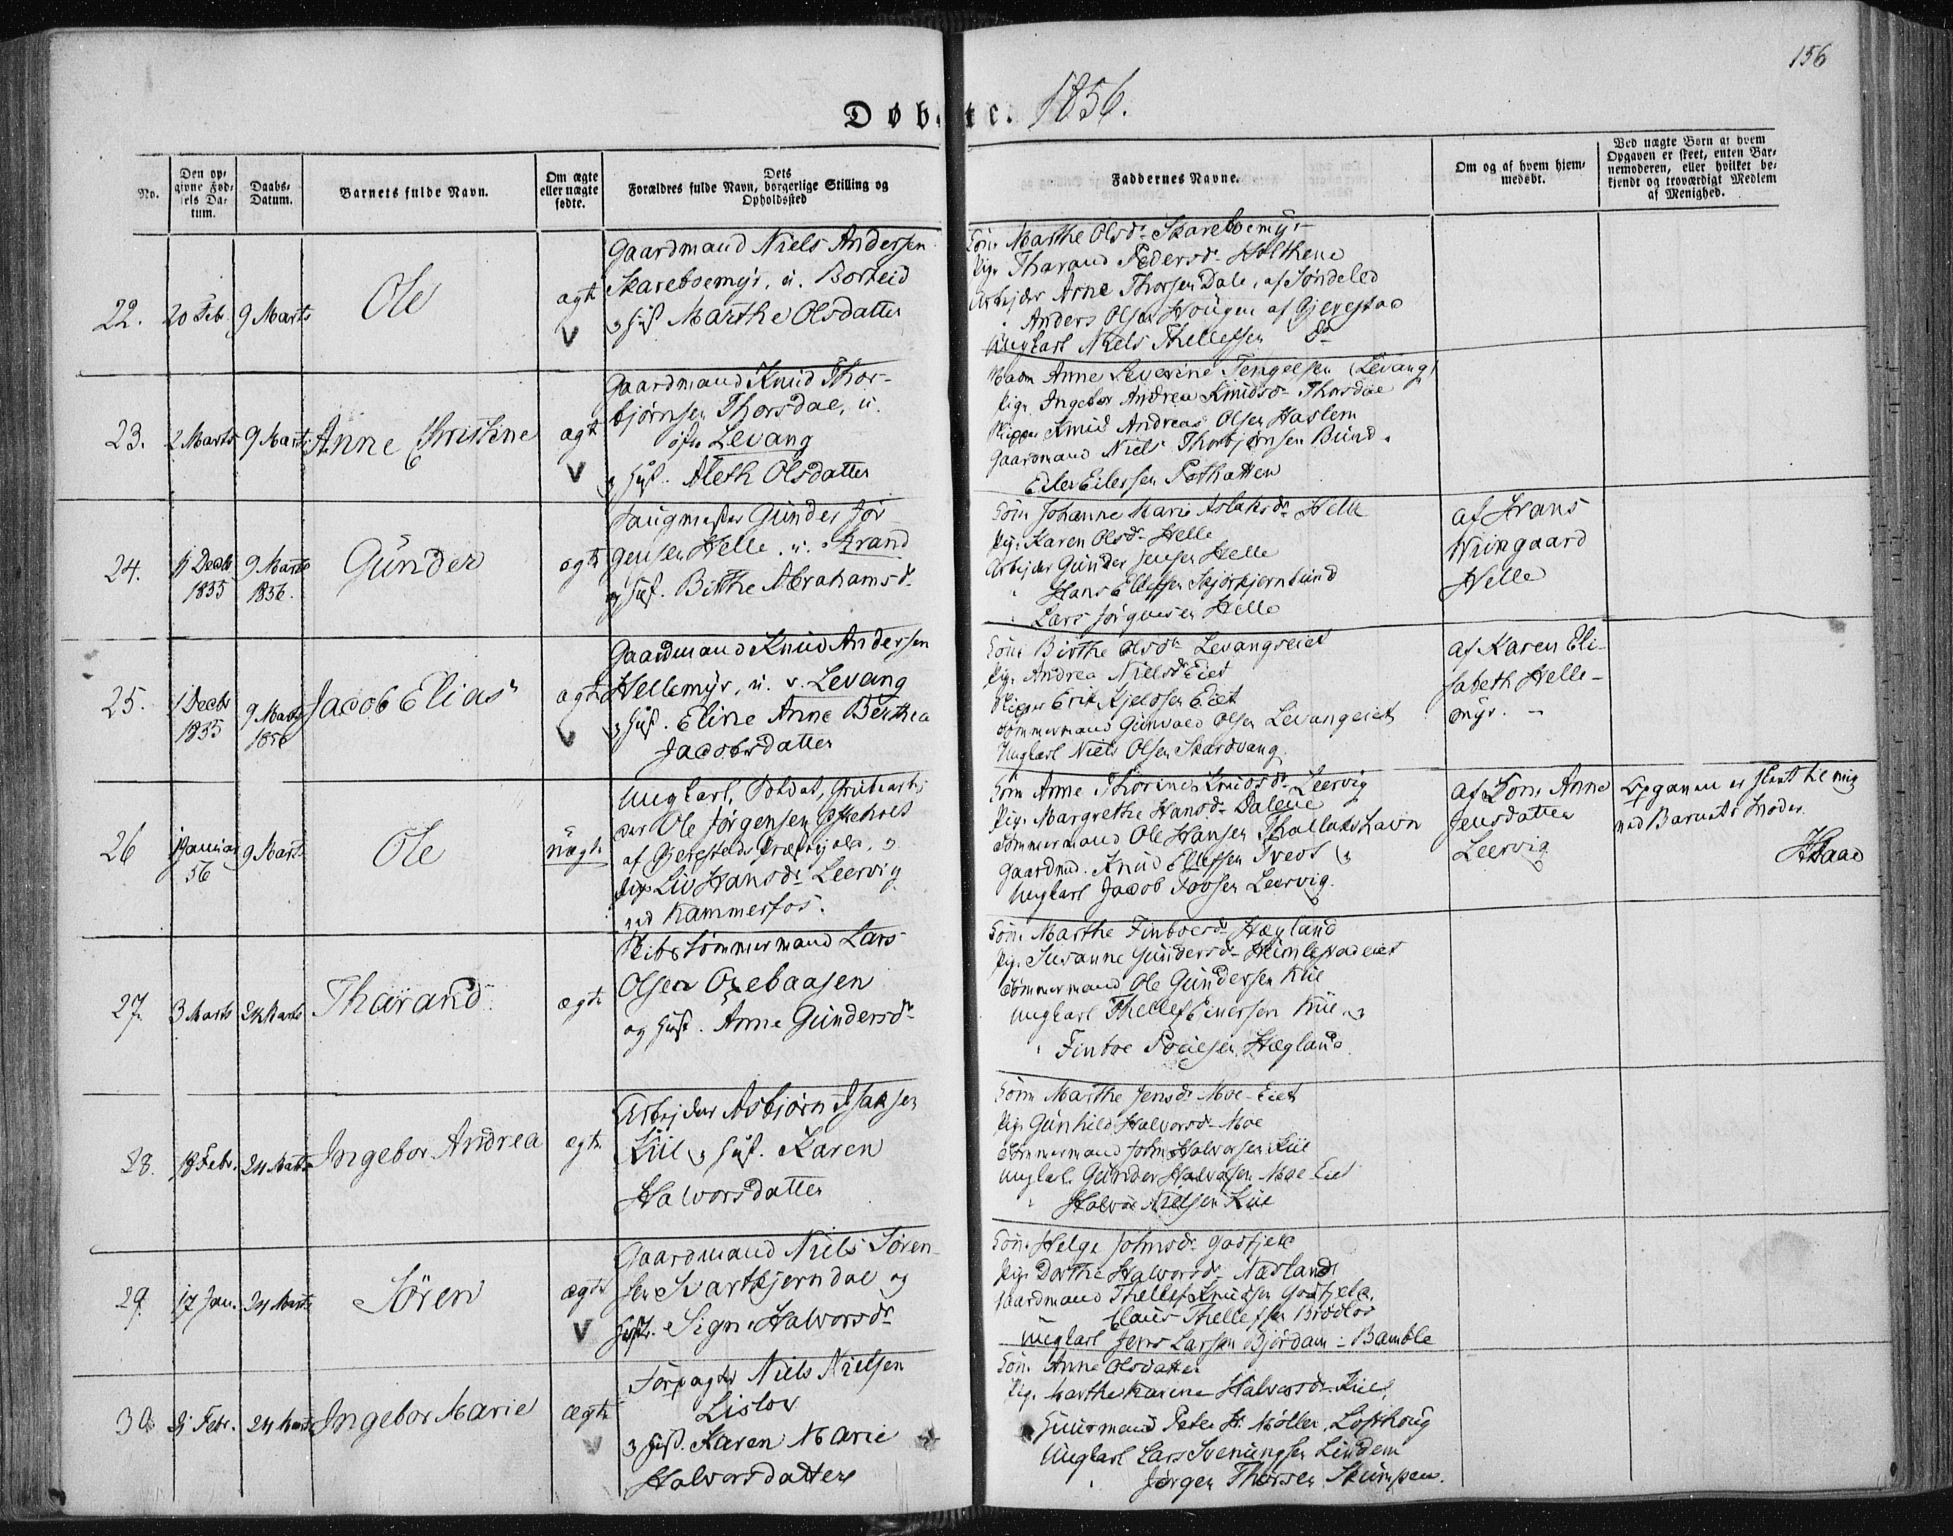 156
Døbte. 1856.
No.
Den opgivne Fødsels Datum.
Daabs-Datum.
Barnets fulde Navn.
Om ægte eller uægte fødte.
Dets Forældres fulde Navn, borgerlige Stilling og Opholdssted
Faddernes Navne.
Om og af hvem hjemmedøbt.
Ved uægte Børn af hvem Opgaven er skeet, enten Barnemoderen, eller hvilket bekjendt og troværdigt Medlem af Menighed.
22. 20 Feb. 9 Marts Ole ægte V
Gaardmand Niels Andersen
Skareboemyr, u.
Marthe Olsdatter
Marthe Olsdr. Skareboemyr
Tharand Pedersdr. Holthene
Arbejder Arne Thorsen Dale, af Søndeled
Anders Olsen Hougen af Gjerestad
Ungkarl Niels Thellefsen
23. 2 Marts 9 Marts Anne Christine ægte V
Gaardmand Knud Thor-
bjørnsen Thorsdal, u.
Levang
Aleth Olsdatter
Madm Anne Severine Tengelsen (Levang)
Pige Ingebor Andrea Knudsdr. Thorsdal
Skipper Knud Andreas Olsen Haslem
Gaardmand Niels Thorbjørnsen Bund
Eiler Eilersen Pothatten
24. Decbr 1855 9 Marts 1856. Gunder ægte
Saugmester Gunder Jør
gensen Helle, u. Strand
og Hust. Birthe Abrahamsdr.
Kone Johanne Marie Aslaksdr. Helle
Pige Karen Olsdr. Helle
Arbejder Gunder Jensen Helle
Hans Ellefsen
Lars Jørgensen Helle
af Hans
Helle
25. 1 Decbr 1855 9 Marts 1856 Jacob Elias ægte V
Gaardmand Knud Andersen
Hellemyr, u. v. Levang
Hust. Eline Anne Berthea
Jacobsdatter
Kone Birthe Olsdr. Levangseiet
Pige Andrea Nielsdr. Eiet
Skipper Erik Kjeldsen Eiet
Tømmermand Gunvald Olsen Levangeiet
Ungkarl Niels Olsen Skardvang.
af Karen Eli-
sabeth Helle-
myr.
26 Januar 56 9 Marts Ole uægte
Ungkarl, Soldat, Grubearbej
der Ole Jørgensen
af Gjerestads Præstegjeld,
Pige Liv Hansdr. Leervig
ved Kammerfos.
Kone Anne Thorine Knudsdr. Leervig
Pige Margrethe Hansdr. Dalene
Tømmermand Ole Hansen
Gaardmd. Knud Ellefsen Tvedt
Ungkarl Jacob Tovsen Leervig.
af Kone Anne
Jensdatter
Leervig
Opgaven er skeet til mig
ved Barnets Moder.
27. 3 Marts 24 Marts Tharand ægte
Skibstømmermand Lars
Olsen Oxebaasen
og Hust. Anne Gundersdr.
Kone Marthe Finboesdr. Hægland
Pige Susanne Gundersdr.
Tømmermand Ole Gundersen Kiil
Ungkarl Thellef Einersen Kiil
Finboe Hægland.
28. 18 Febr. 24 Marts Ingebor Andrea ægte
Arbejder Asbjørn Isaksen
Kiil Hust. Karen
Halvorsdatter
Kone Marthe Jensdr. Moe-Eiet
Pige Gunhild Halvorsdr. Moe
Tømmermand John Halvorsen Kiil
Ungkarl Gunder Halvorsen Moe Eiet
Halvor Nielsen Kiil
29. 17 Jan. 24 Marts Søren ægte V
Gaardmand Niels Søren-
sen Svartkjerndal og
Hust. Signe Halvorsdr.
Kone Helge Johnsdr. Godfjeld
Pige Dorthe Halvorsdr. Næsland
Gaardmand Thellef Knudsen Godfjeld
Claus Thellefsen
Ungkarl Jens Larsen Bjordam: Bamble
30. Febr. 24 Marts Ingebor Marie ægte V
Forpagter Niels Nielsen
Lislov
Hust. Karen Marie
Halvorsdatter
Kone Anne Olsdatter
Pige Marthe Karine Halvorsdr. Kiil
Peter H. Møller
Ungkarl Lars Sveningsen Lindem
Jørgen Thorsen Skumpen.